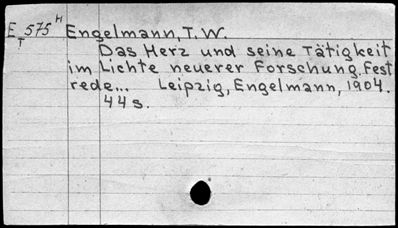 E 575 H Engelmann, T. W.
T
Das Herz und seine Tätigkeit
im Lichte neuerer Forschung. Fest
rede... Leipzig, Engelmann, 1904.
44 s.